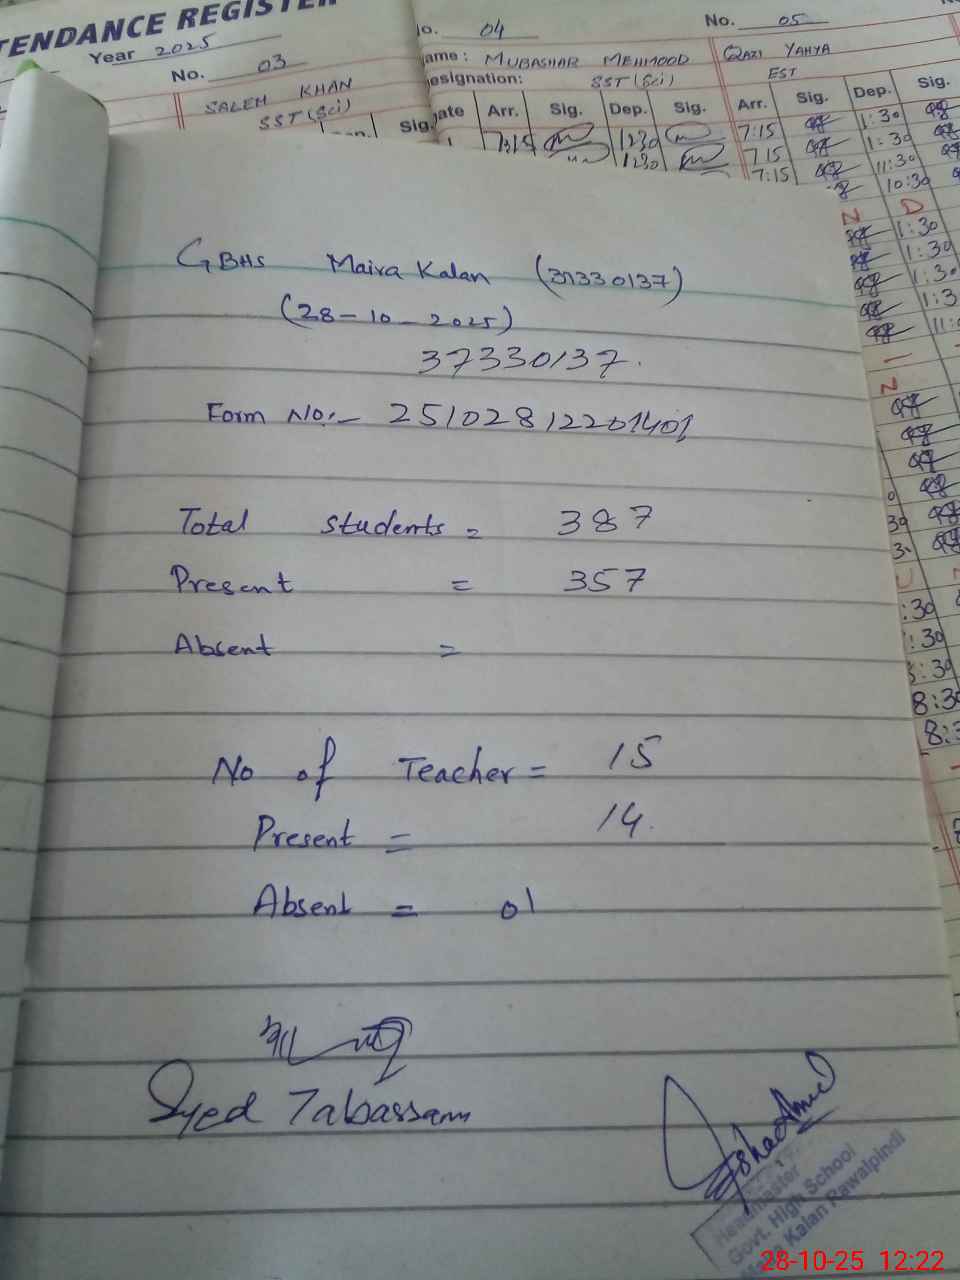 TENDANCE REGISTER
Year 2025
No. 03
SALEH KHAN
SST (Sci)
Sig.
No. 04
Name: MUBASHAR MEHMOOD
Designation: SST (Sci)
Date Arr. Sig. Dep. Sig.
7:15 1230
1230
No. 05
QAZI YAHYA
EST
Arr. Sig. Dep. Sig.
7:15 1:30
7:15 1:30
7:15 11:30
10:30
1:30
1:30
GBHS Maira Kalan (37330137)
(28-10-2025)
37330137.
Form No:- 25102812201401
Total students = 387
Present = 357
Absent =
No of Teacher = 15
Present = 14.
Absent = 01
Syed Tabassam
Headmaster
Govt. High School
Kalan Rawalpindi
28-10-25 12:22